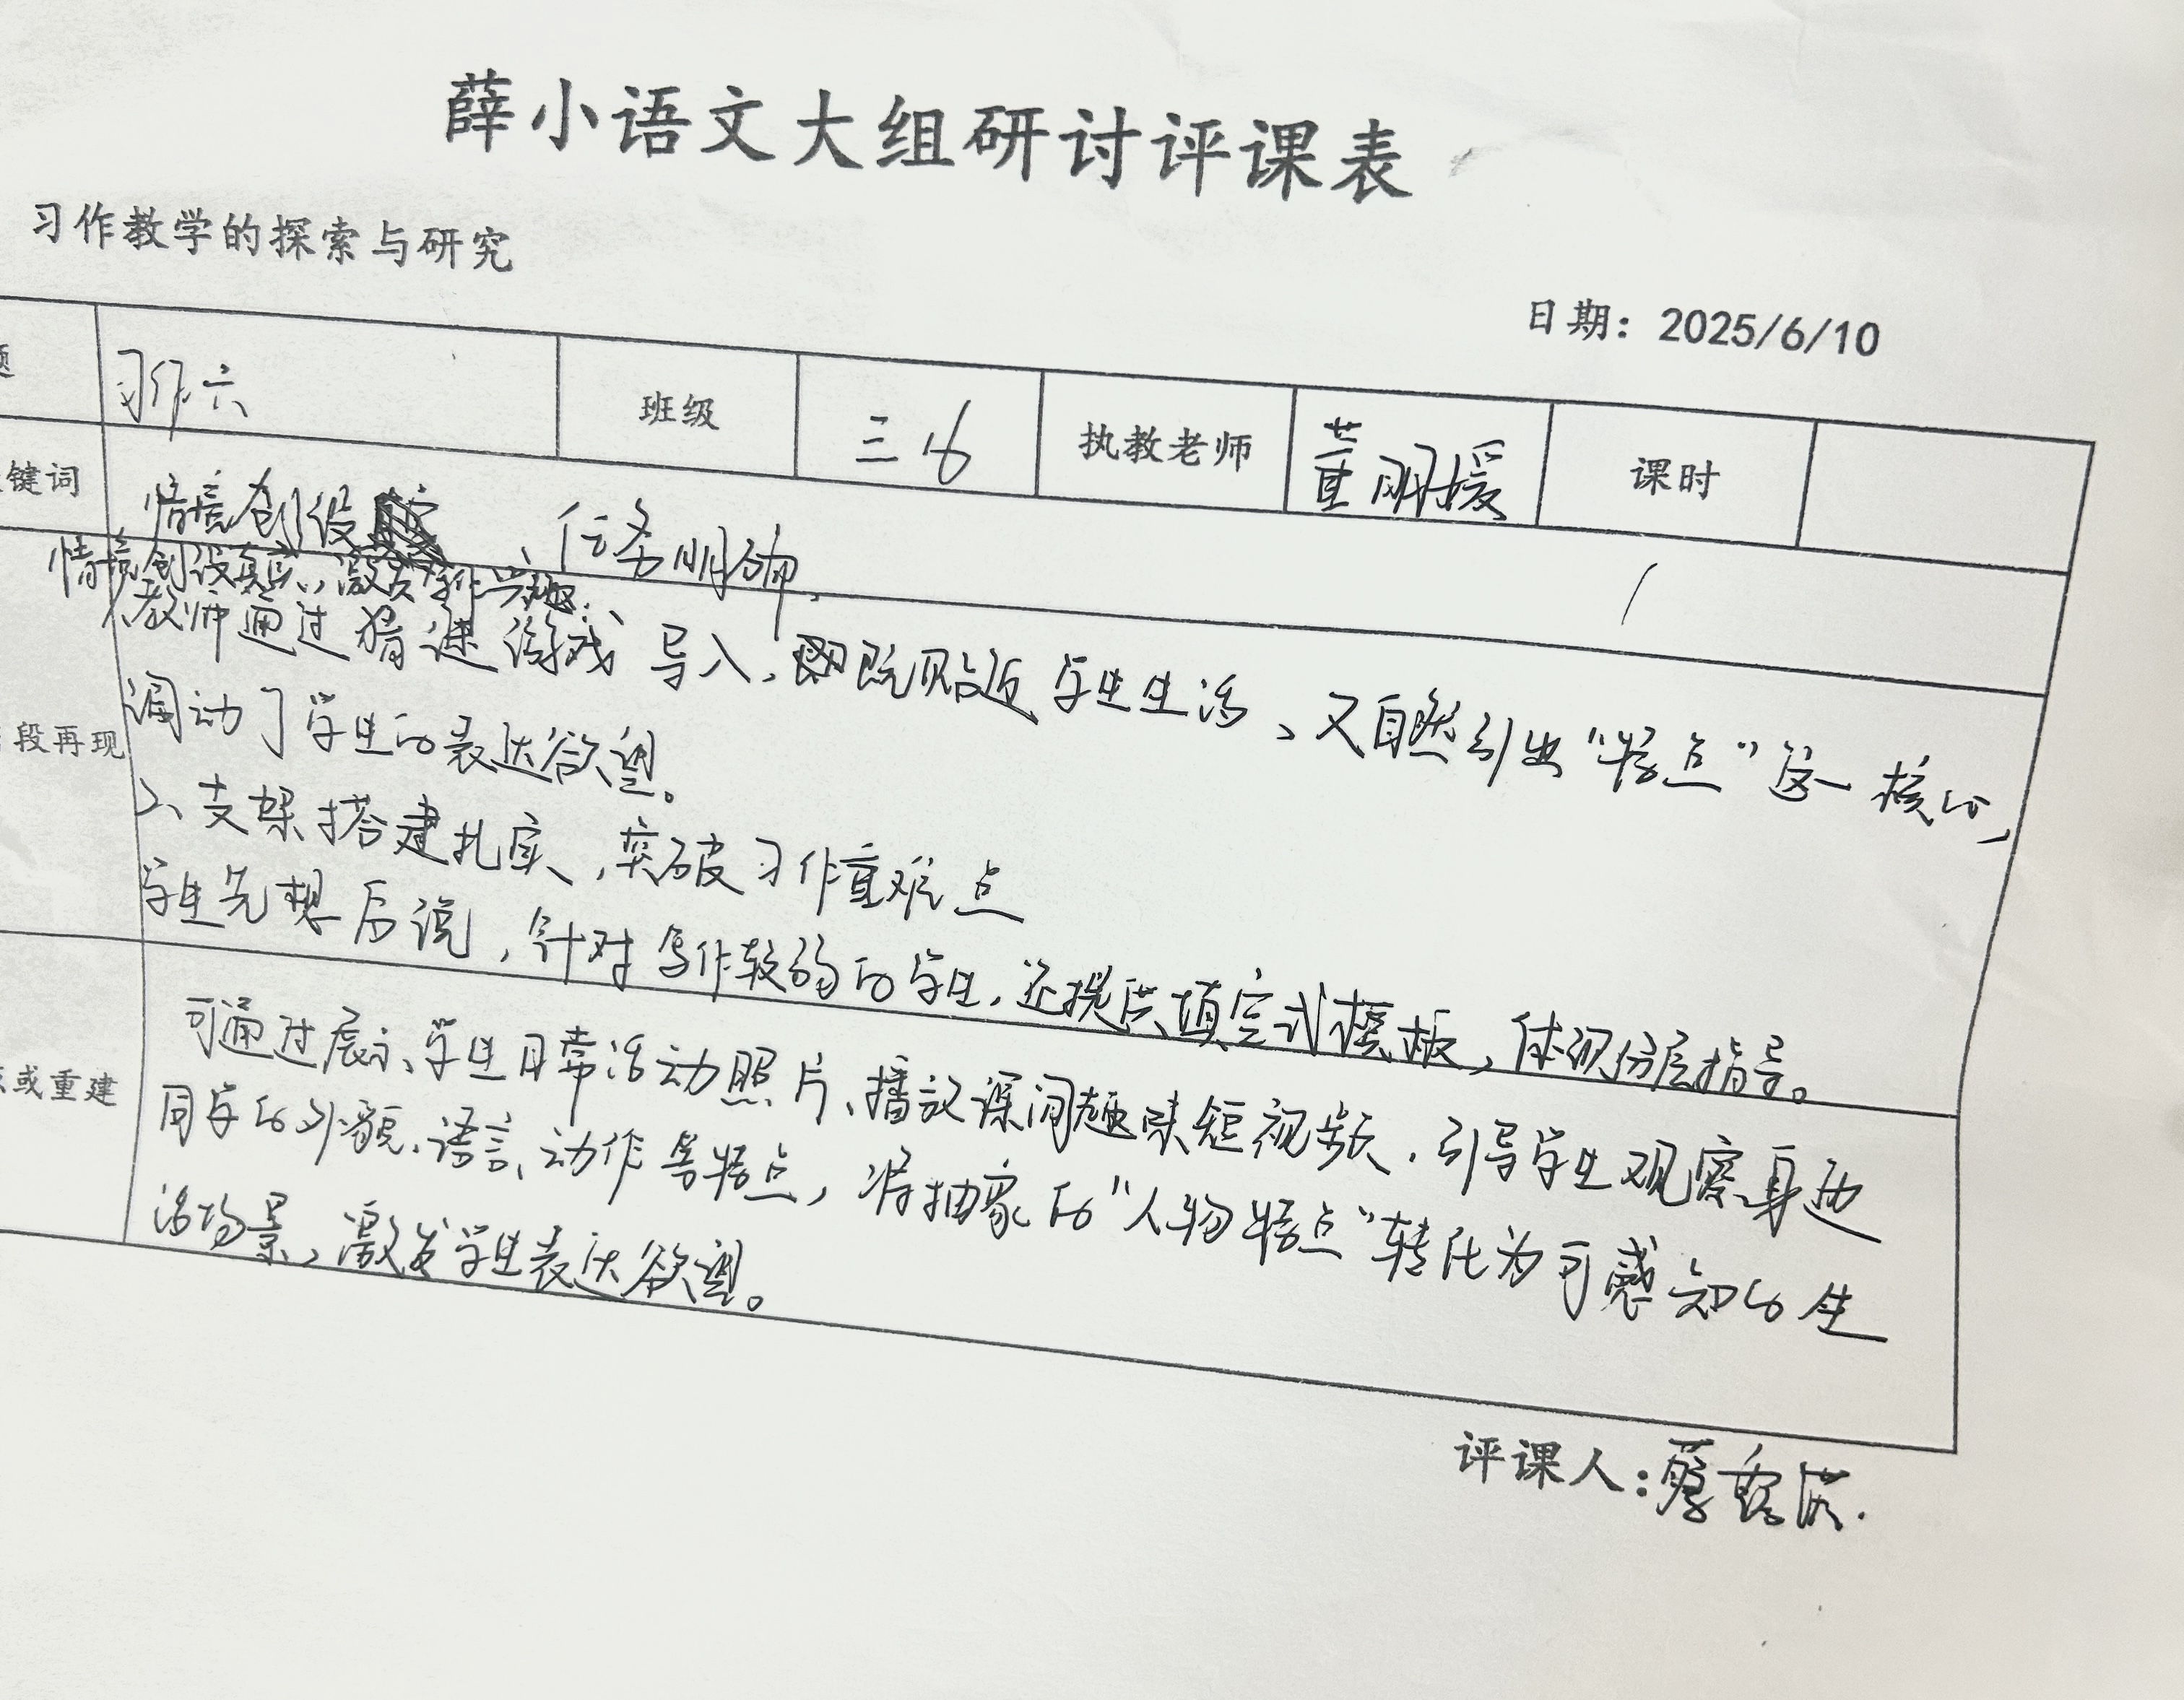 薛小语文大组研讨评课表
习作教学的探索与研究
日期：2025/6/10
题 习作六 班级 三 执教老师 董明媛 课时
键词 情境创设 、任务明确。
情境创设真实，激发习作兴趣。
教师通过猜谜游戏导入，既贴近学生生活、又自然引出“特点”这一核心，
段再现 调动了学生的表达欲望。
2、支架搭建扎实，突破习作重难点
学生先想后说，针对写作较弱的学生，还提供填空式模板，体现分层指导。
或重建 可通过展示学生日常活动照片、播放课间趣味短视频，引导学生观察身边
同学的外貌、语言、动作等特点，将抽象的“人物特点”转化为可感知的生
活场景，激发学生表达欲望。
评课人：